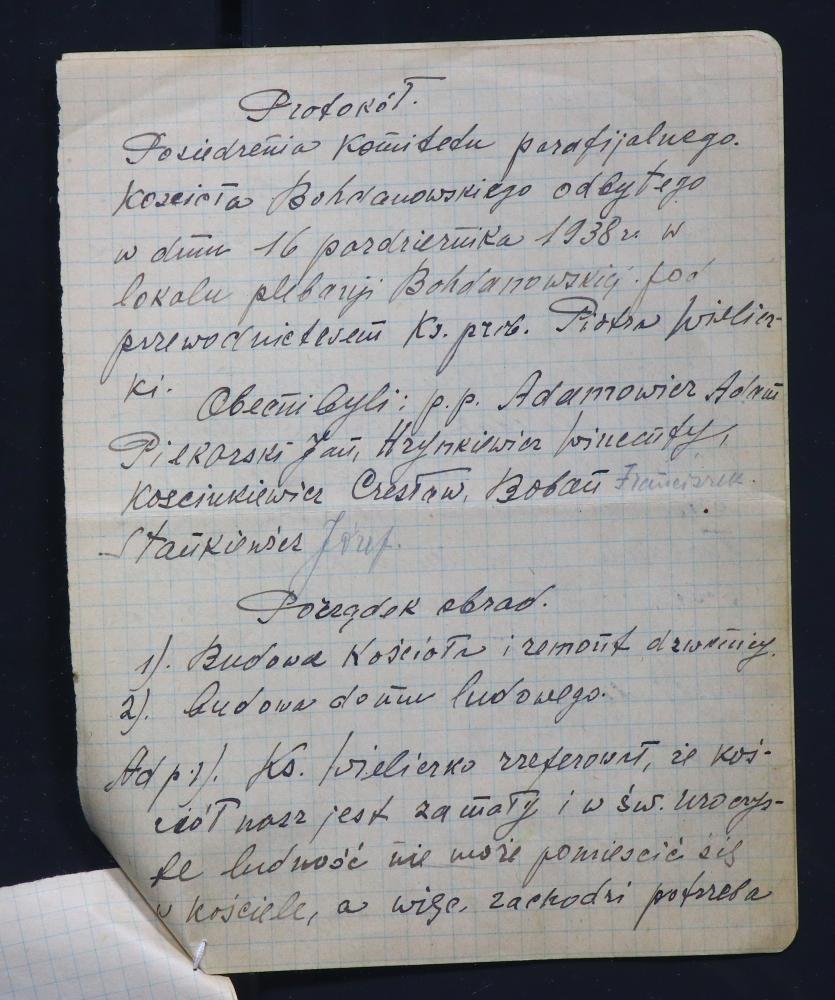 Protokół.
Posiedzenia Komitetu parafijalnego.
Kościoła Bohdanowskiego odbytego
w dniu 16 pazdziernika 1938 r. w
lokalu plebanji Bohdanowskiej pod
przewodnictwem Ks. prob. Piotra Wielicz-
ki.
Obecni byli: p.p. Adamowicz Adam
Piekarski Jan, Hrynkiewicz Wincenty,
Kosciukiewicz Czesław, Boban Franciszek
Stankiewicz Józef.
Porządek obrad.
1). Budowa Kościoła i remont dzwonnicy.
2). budowa domu ludowego.
Ad p. 1). Ks. Wieliczko zreferował, że koś-
ciół nasz jest zamały i w św. uroczys-
te ludność nie może pomieścić się
w kościele, a więc, zachodzi potrzeba